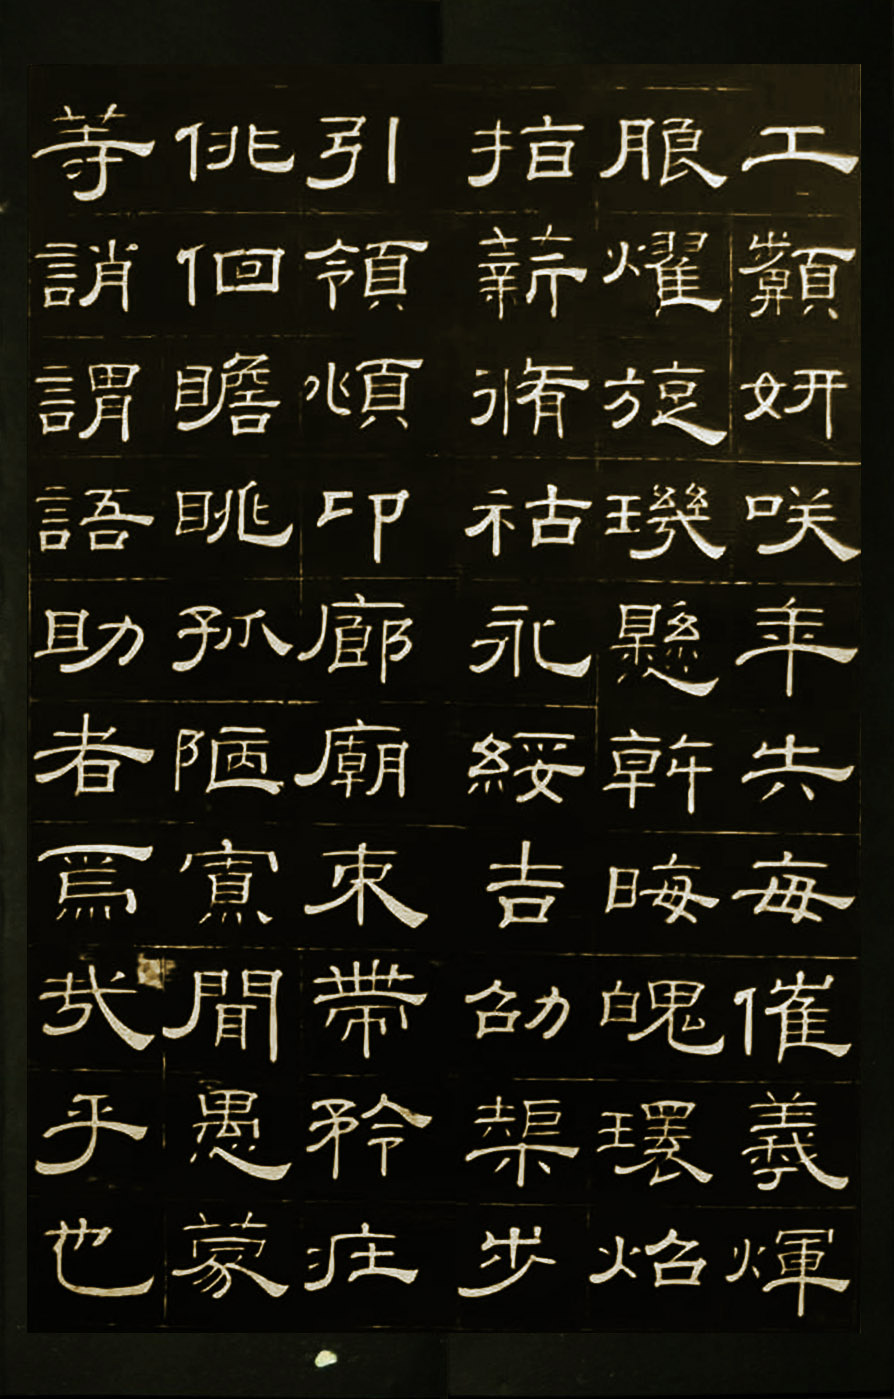 工顰妍咲年矢每催羲暉
朗耀旋璣懸斡晦魄環照
指薪脩祜永綏吉劭矩步
引領俯仰廊廟束帶矜莊
徘徊瞻眺孤陋寡聞愚蒙
等誚謂語助者焉哉乎也